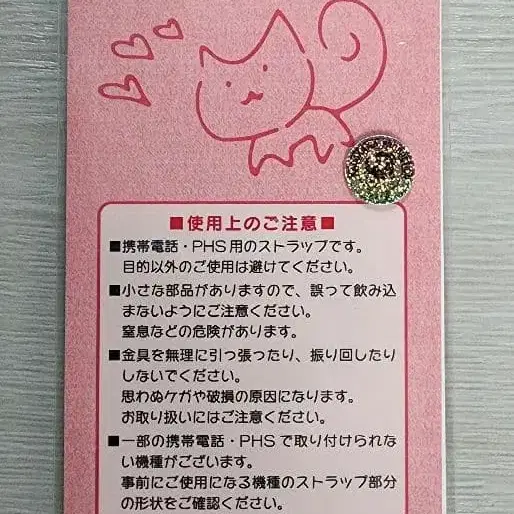 ■使用上のご注意■
■携帯電話・PHS用のストラップです。
目的以外のご使用は避けてください。
■小さな部品がありますので、誤って飲み込
まないようにご注意ください。
窒息などの危険があります。
■金具を無理に引っ張ったり、振り回したり
しないでください。
思わぬケガや破損の原因になります。
お取り扱いにはご注意ください。
■一部の携帯電話・PHSで取り付けられな
い機種がございます。
事前にご使用になる機種のストラップ部分
の形状をご確認ください。